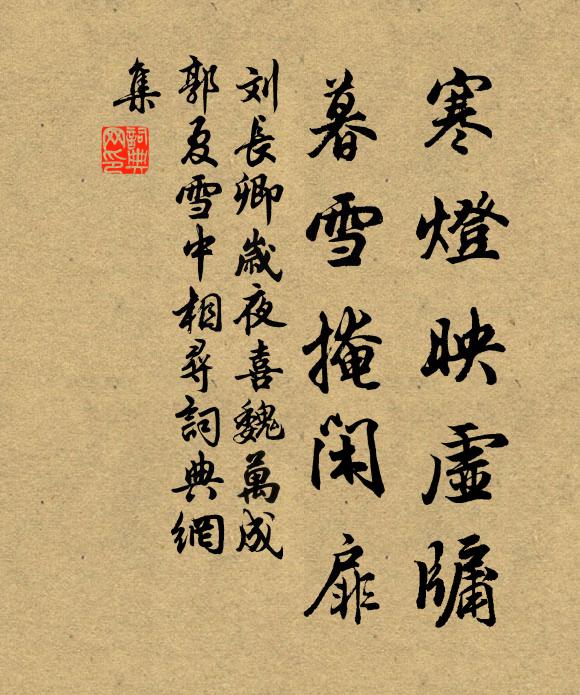 寒燈映虛牖
暮雪掩閑扉
刘長卿歲夜喜魏萬成
郭夏雪中相尋詞典網
集
詞典
网印